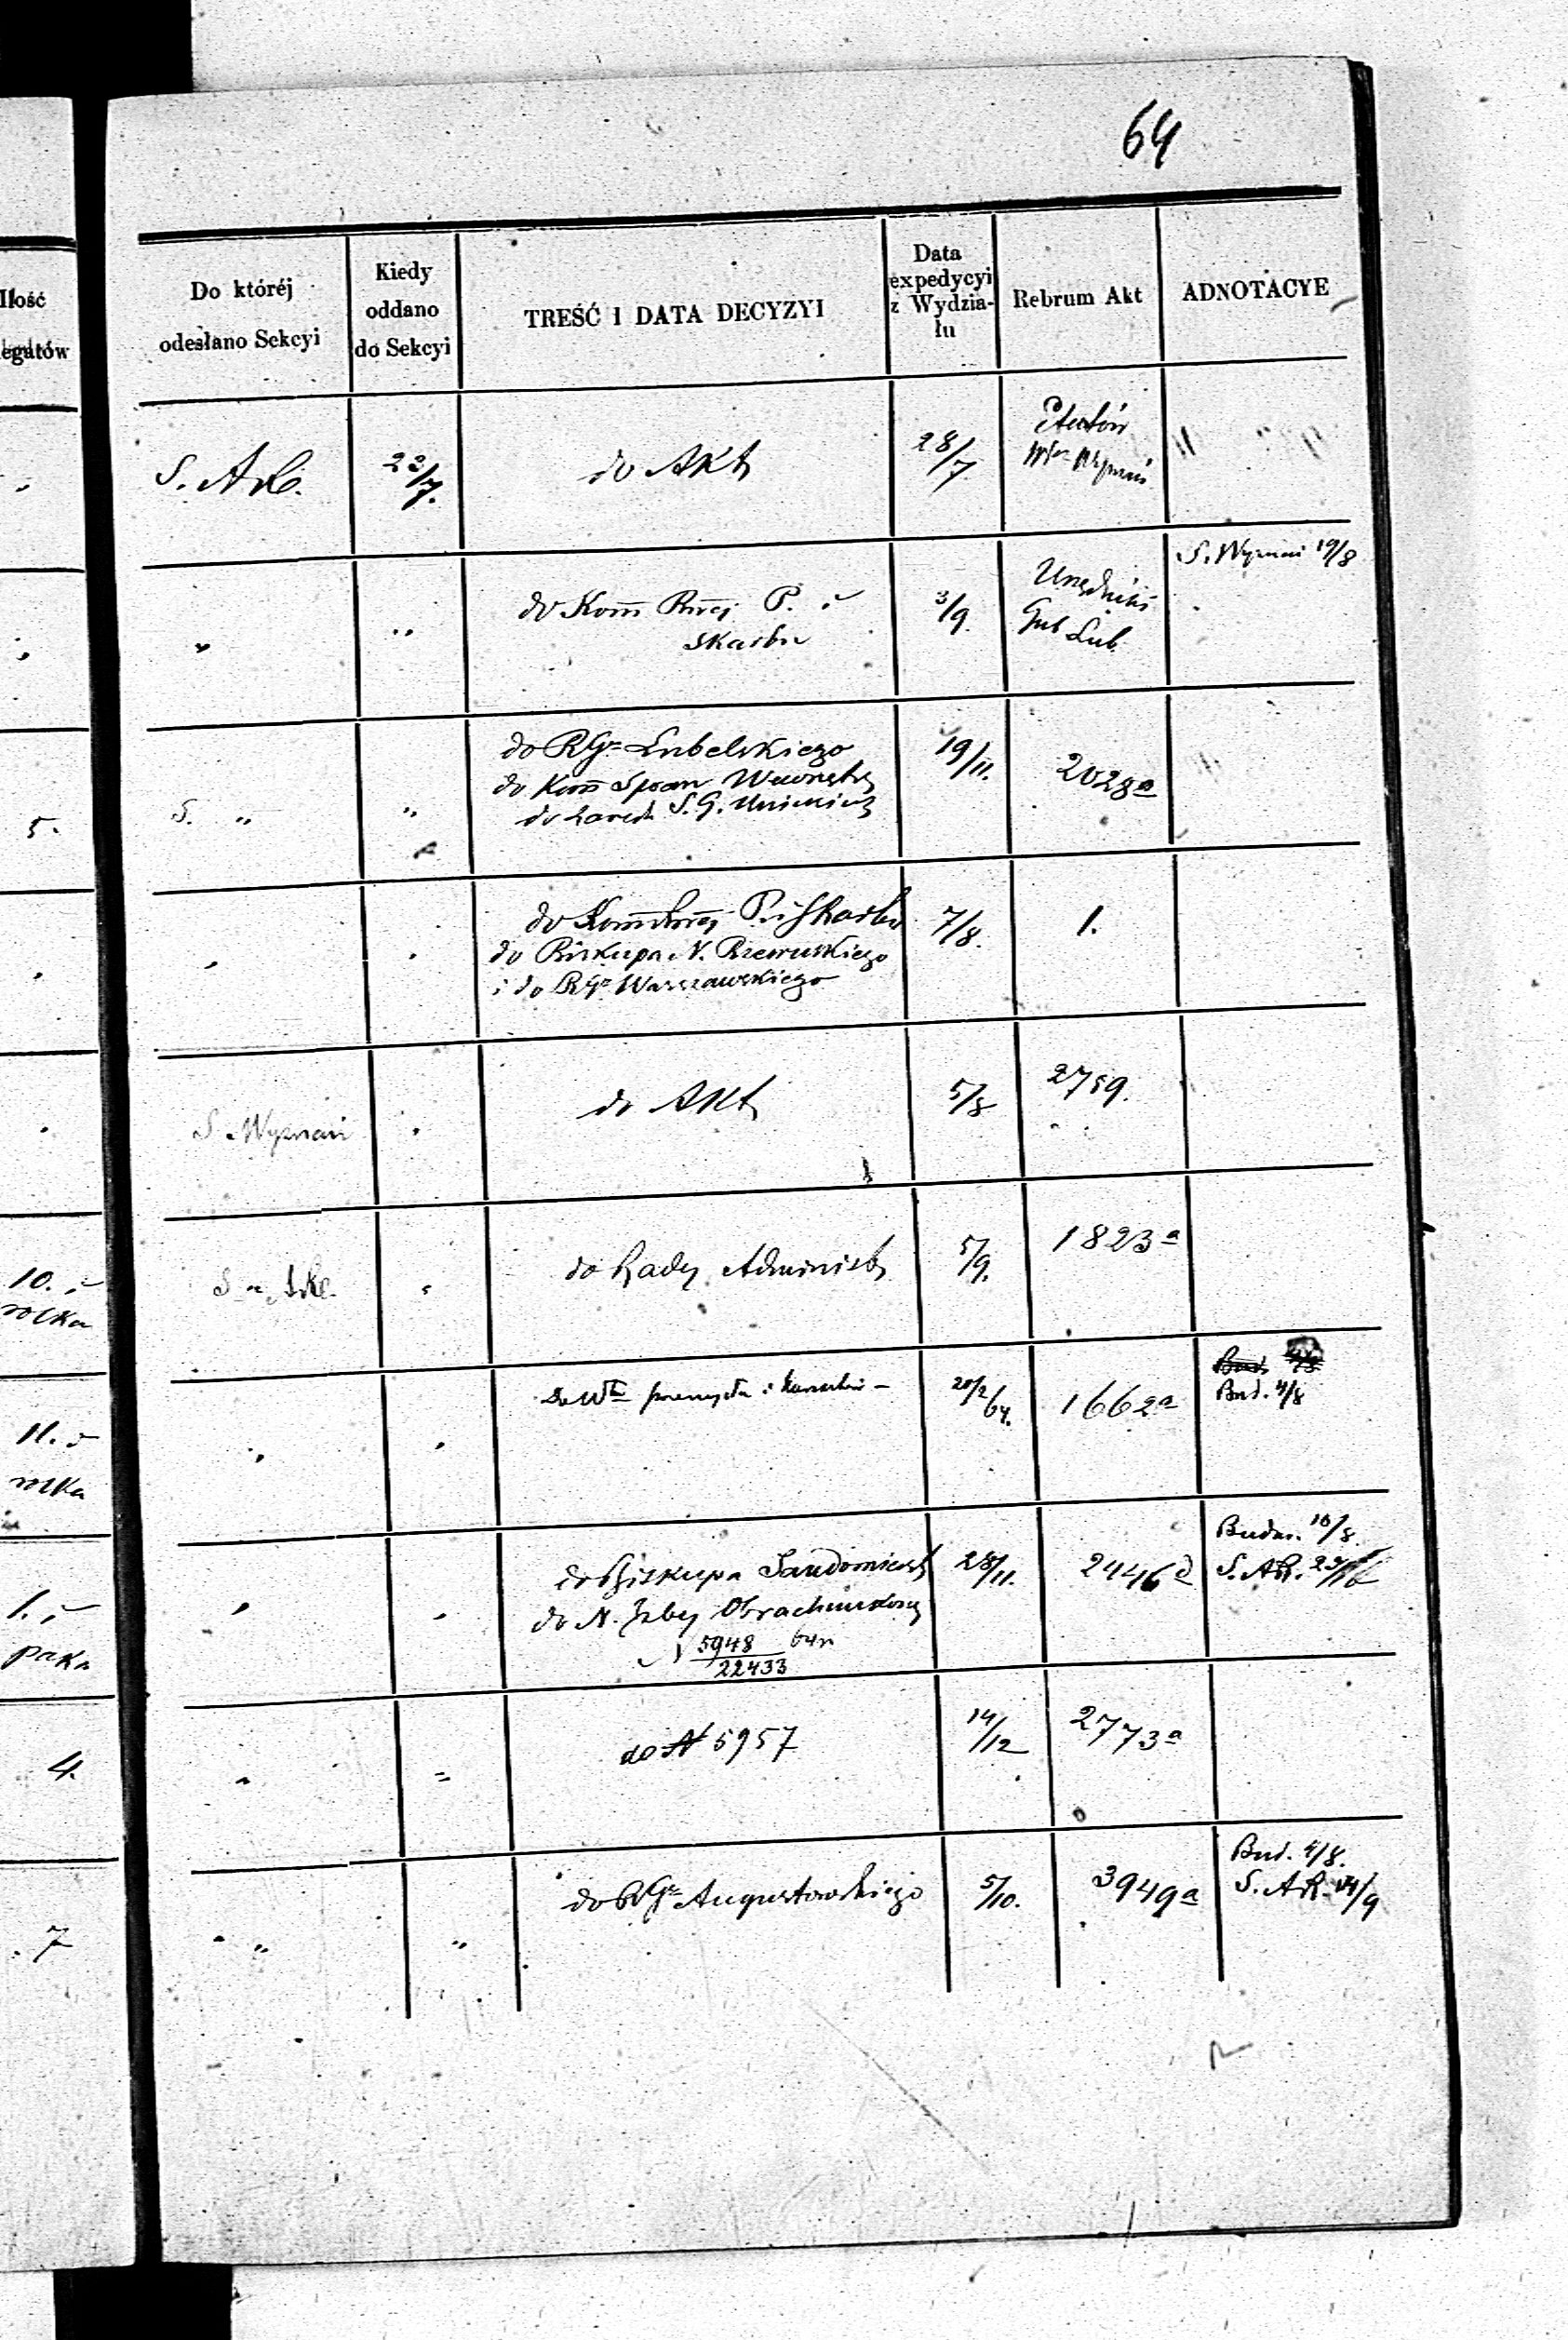 64
Ilość
legatów
Do któréj
odesłano Sekcyi
Kiedy
oddano
do Sekcyi
TREŚĆ I DATA DECYZYI
Data
expedycyi
z Wydzia-
łu
Rebrum Akt
ADNOTACYE
22/7.
do Akt
28/7
"
"
do Komm Rząj P. i
Skarbu
3/9.
Urzędnicy
Gub Lub.
S. Wyznań 19/8
5.
S. "
"
do RGo Lubelskiego
do Kom Spraw Wewnętrz
do S. G.
19/11.
2028a
"
"
do P. i Skarbu
do Biskupa N. Rzewuskiego
i do RGo Warszawskiego
7/8.
1.
S. Wyznań
"
do Akt
5/8
2759.
10. i
rolka
"
do Rady Administr
5/9.
1823a
11. i
rolka
"
"
do przemysłu i
20/2/64.
1662a
Bud. 4/8
1. i
paka
"
"
do Biskupa Sandomiersk
do N. Izby Obrachunkowej
N 5948/22433 64r
28/11.
2446d
Budow. 10/8.
4.
"
"
do N 5957
14/12
2773a
7
"
"
do RGo Augustowskiego
5/10.
3949a
Bud. 4/8.